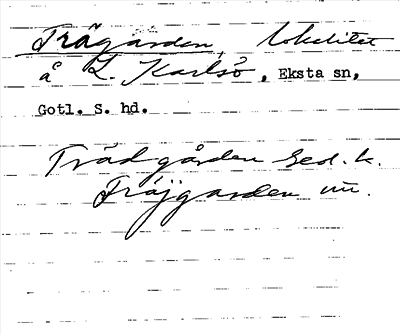 Trägarden, lokalitet
å L. Karlsö, Eksta sn,
Gotl. S. hd.
Trädgården Ged. k.
Träjgarden um.